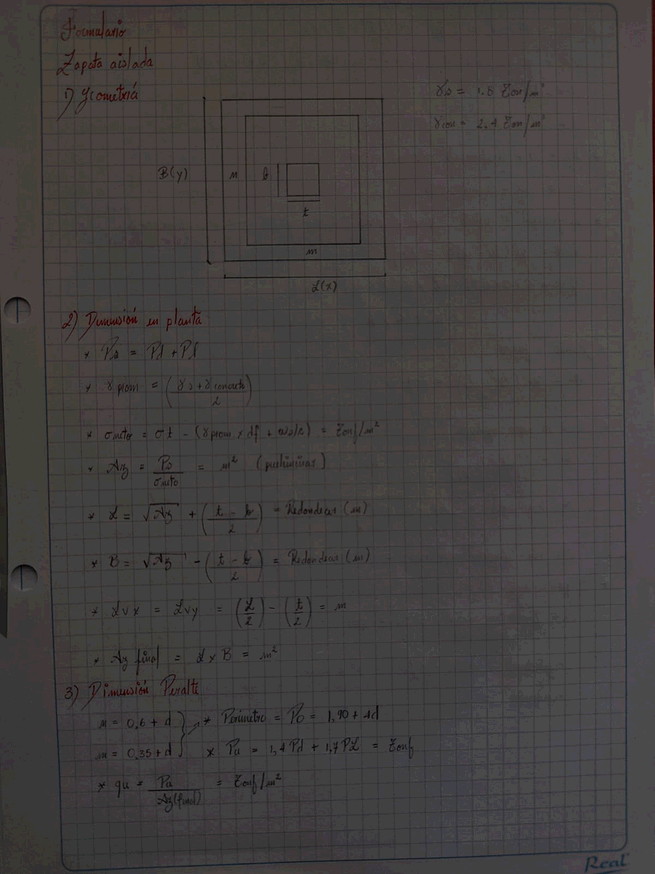 Formulario
Zapata aislada
1) Geometria
γs = 1.6 Tonf/m³
γcon = 2.4 Tonf/m³
B(y) n b
t
m
L(x)
2) Dimensión en planta
* Ps = Pd + Pl
* γ prom = (γs + γ concreto / 2)
* σ neto = σt - (γ prom × df + ws/c) = Tonf/m²
* Az = Ps / σ neto = m² (preliminar)
* L = √Az + (t - b / 2) = Redondear (m)
* B = √Az - (t - b / 2) = Redondear (m)
* Lvx = Lvy = (L/2) - (t/2) = m
* Az final = L x B = m²
3) Dimensión Peralte
n = 0,6 + d * Perimetro = Po = 1,90 + 4d
m = 0,35 + d * Pu = 1,4 Pd + 1,7 PL = Tonf
* qu = Pu / Az(final) = Tonf/m²
Real